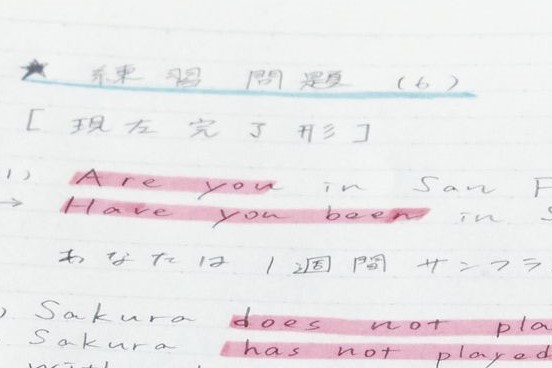 ★ 練習問題 (6)
[現在完了形]
1) Are you in San F
→ Have you been in S
あなたは1週間サンフラ
) Sakura does not pla
Sakura has not played